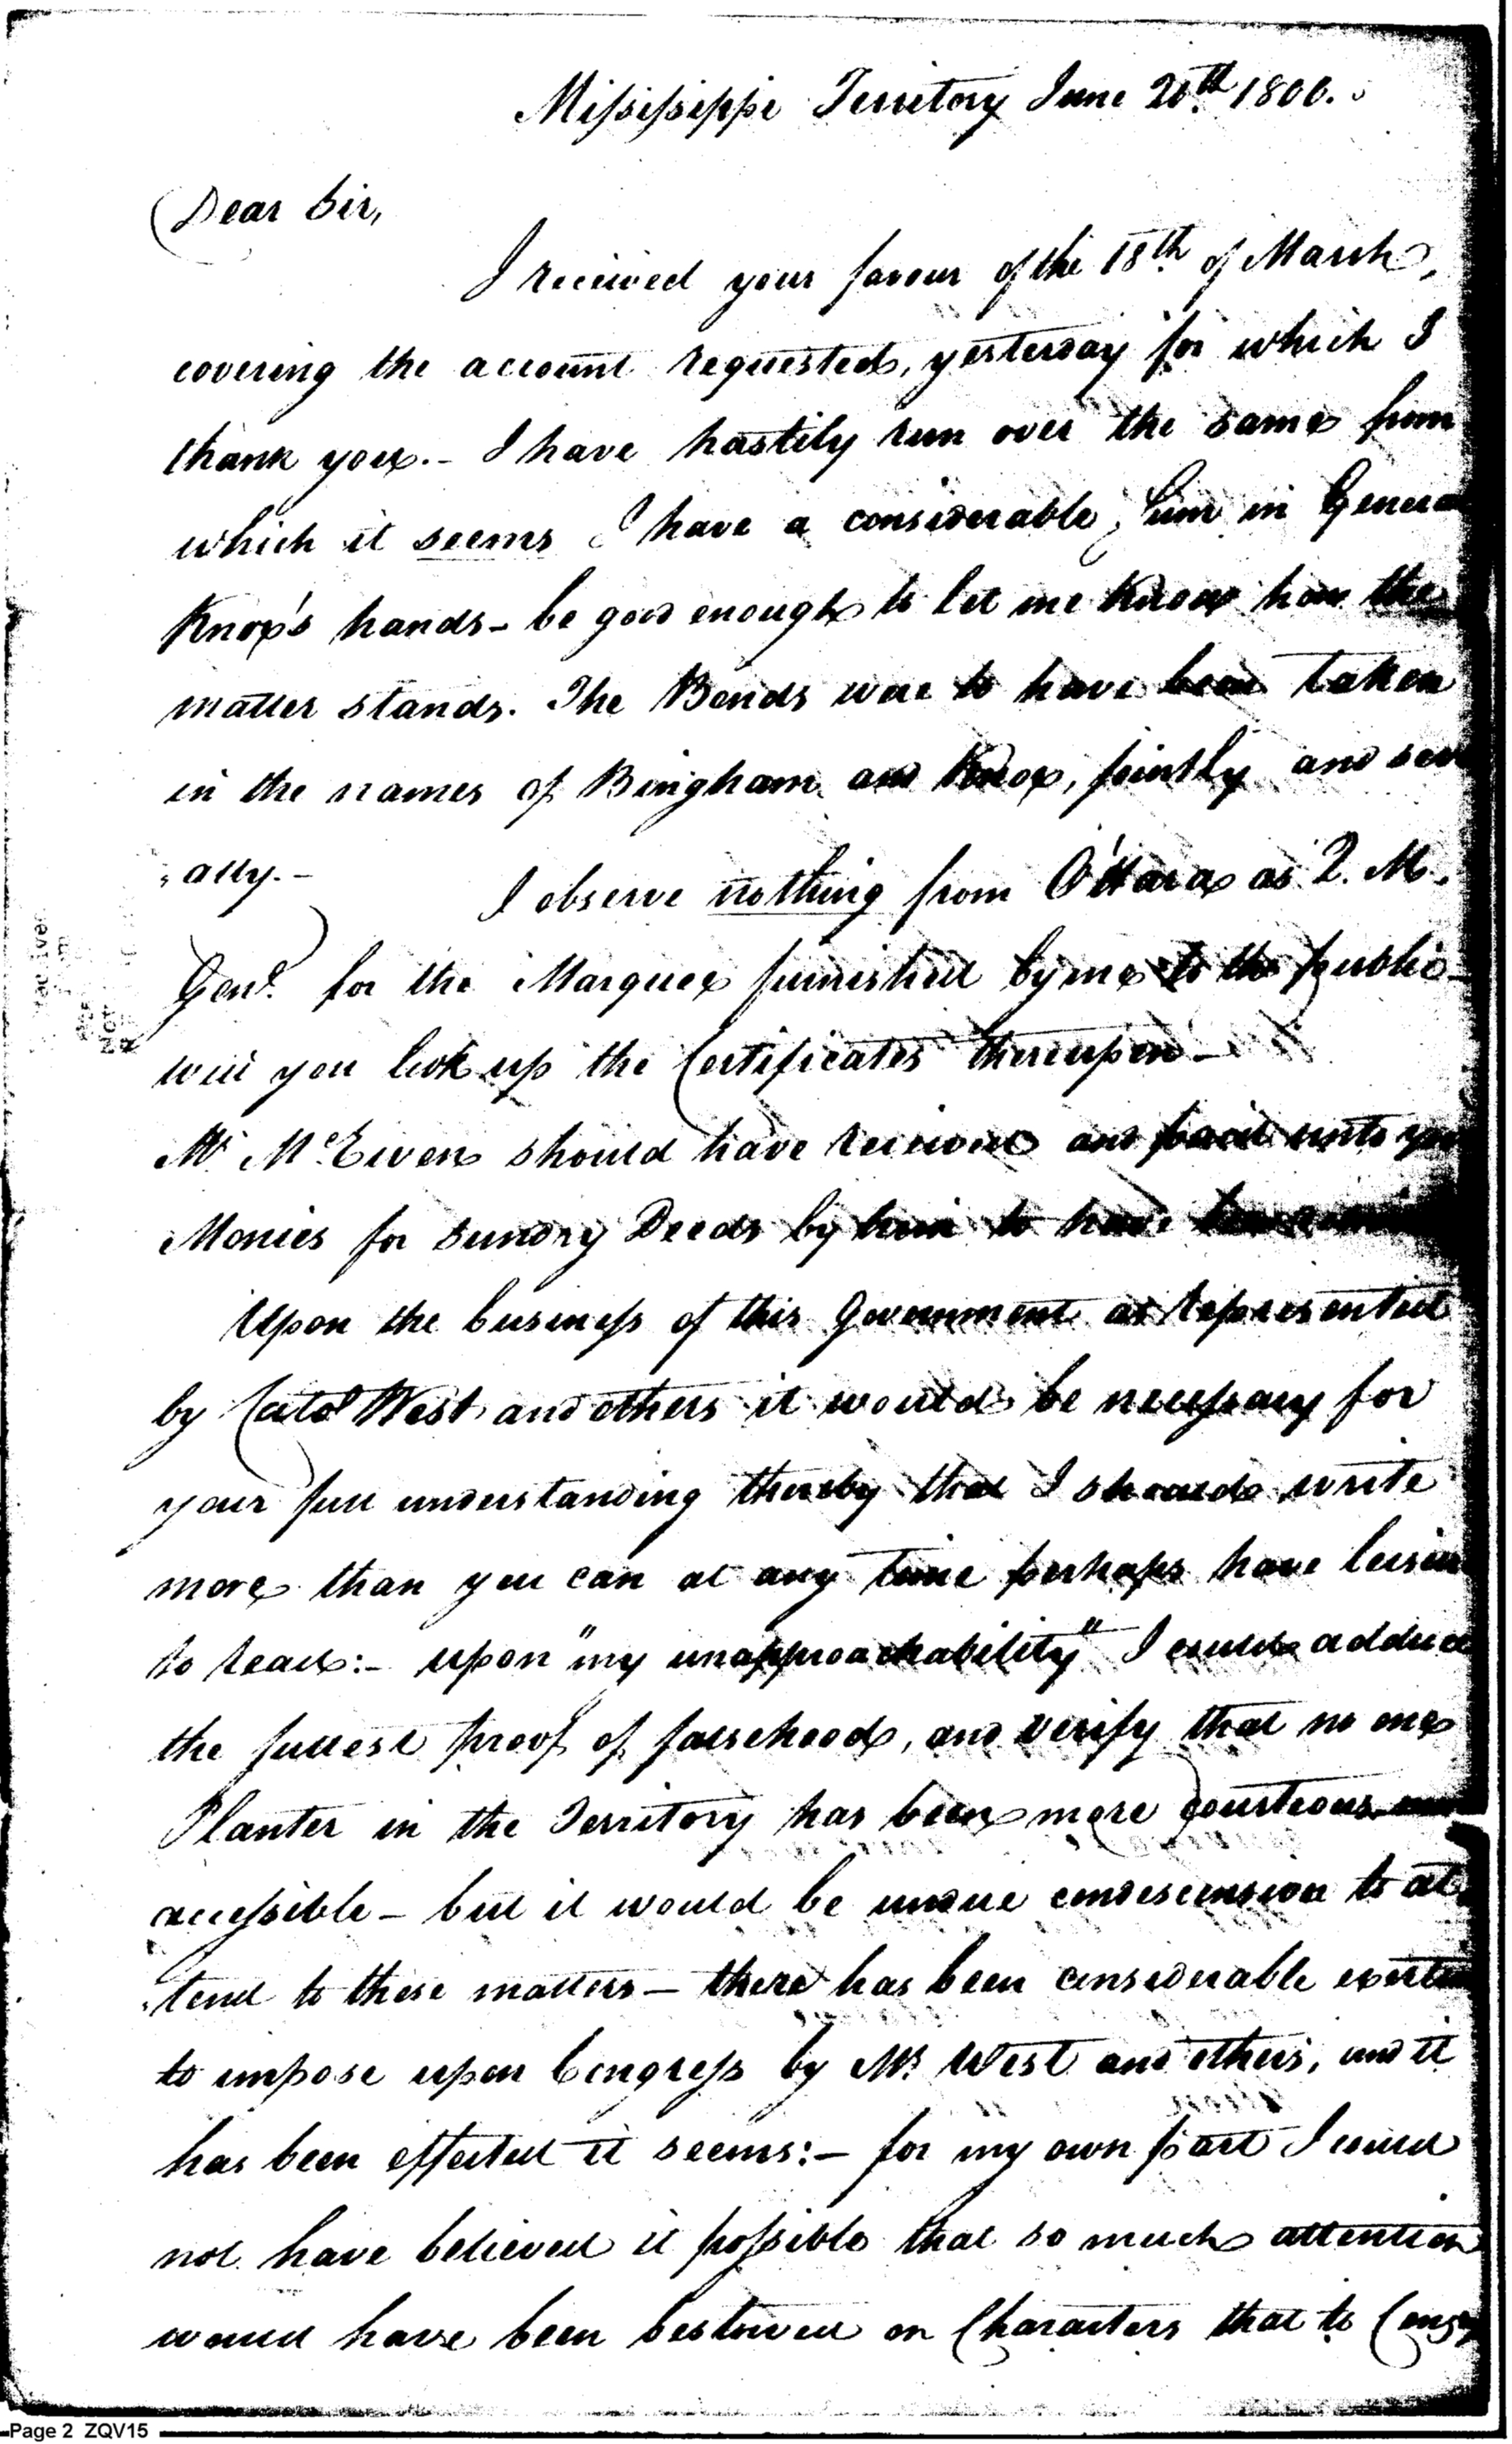 Mississippi Territory June 20th 1800.
Dear Sir,
I received your favour of the 18th of March,
covering the account requested, yesterday for which I
thank you.- I have hastily run over the same from
which it seems I have a considerable Sum in General
Knox's hands - be good enough to let me know how the
matter stands. The Bonds were to have been taken
in the names of Bingham and Knox, jointly and sev
ally.-
I observe nothing from O'Hara as Q. M.
Genl. for the Marquee furnished by me to the public -
will you look up the Certificates thereupon -
Mr McEwen should have received and paid unto you
Monies for sundry Deeds by him to have been
Upon the business of this Government as represented
by Cato West and others it would be necessary for
your full understanding thereby that I should write
more than you can at any time perhaps have leisure
to read:- upon "my unapproachability" I could adduce
the fullest proof of falsehood, and verify that no one
Planter in the Territory has been more courteous
accessible - but it would be undue condescension to at
tend to these matters - there has been considerable
to impose upon Congress by Mr. West and others, and it
has been effected it seems:- for my own part I could
not have believed it possible that so much attention
would have been bestowed on Characters that to
Page 2 ZQV15